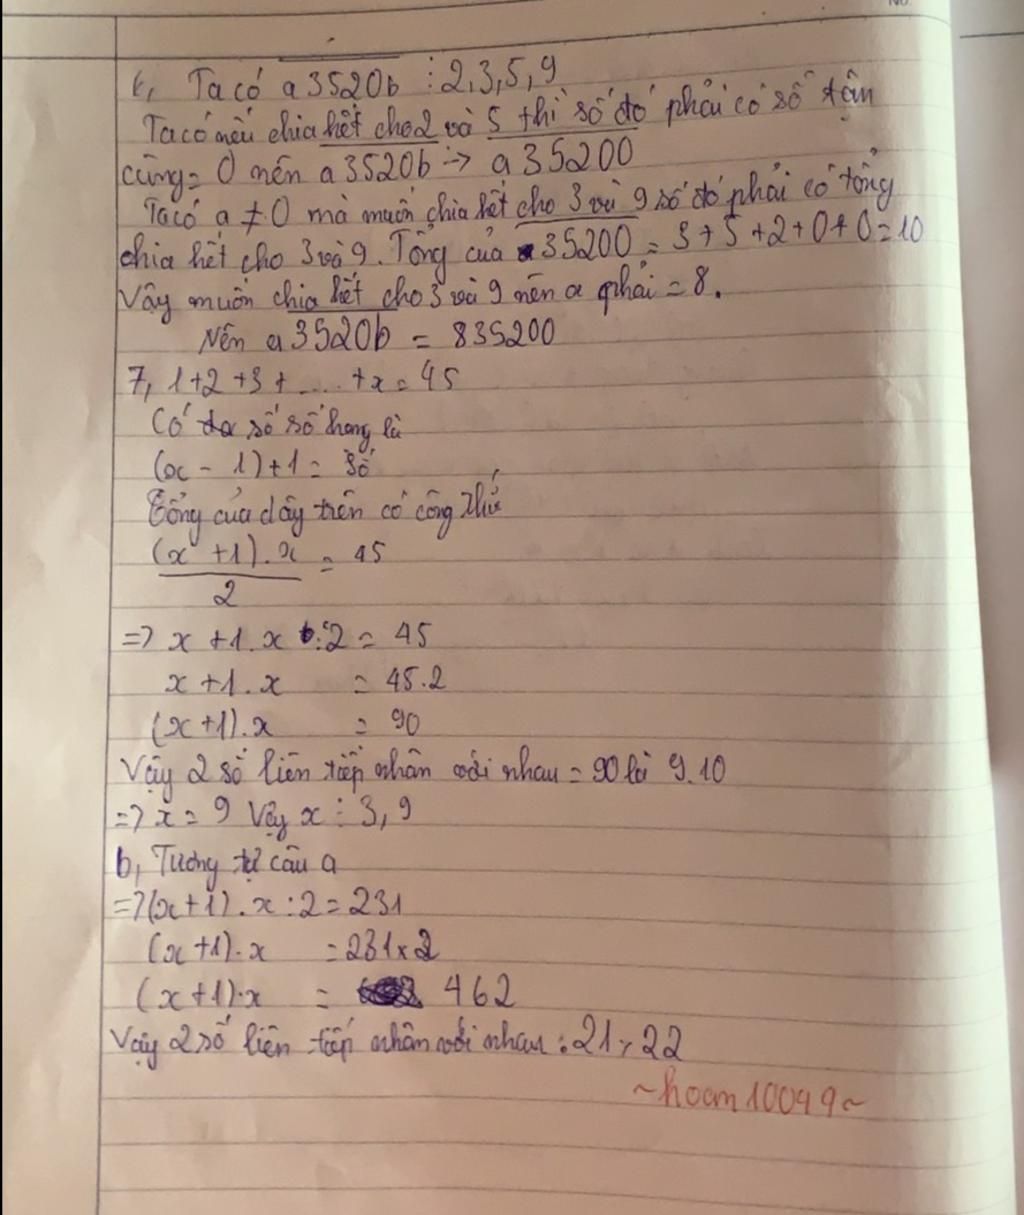 6, Ta có a3520b ⋮ 2,3,5,9
Ta có nếu chia hết cho 2 và 5 thì số đó phải có số tận
cùng = 0 nên a3520b → a35200
Ta có a ≠ 0 mà muốn chia hết cho 3 và 9 số đó phải có tổng
chia hết cho 3 và 9. Tổng của 35200 = 3+5+2+0+0=10
Vậy muốn chia hết cho 3 và 9 nên a phải = 8.
Nên a3520b = 835200
7, 1+2+3+.....+x=45
Có số số hạng là
(x-1)+1= số
Tổng của dãy trên có công thứ
(x+1).x = 45
2
=> x+1.x :2 = 45
x+1.x = 45.2
(x+1).x = 90
Vậy 2 số liên tiếp nhân với nhau = 90 là 9.10
=> x = 9 Vậy x ⋮ 3,9
b, Tương tự câu a
=> (x+1).x:2=231
(x+1).x =231×2
(x+1).x = 462
Vậy 2 số liên tiếp nhân với nhau : 21, 22
~hoam10049~